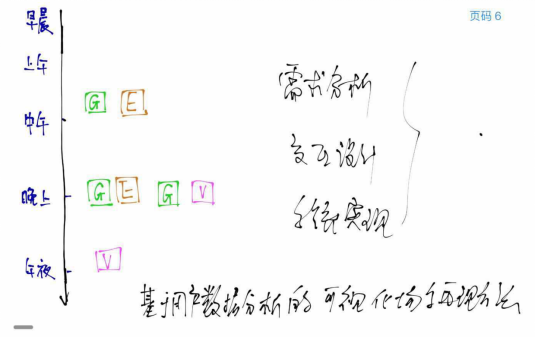 页码 6
早晨
上午
G E
中午
晚上 G E G V
午夜 V
需求分析
交互设计
系统实现
基于用户数据分析的可视化场方法